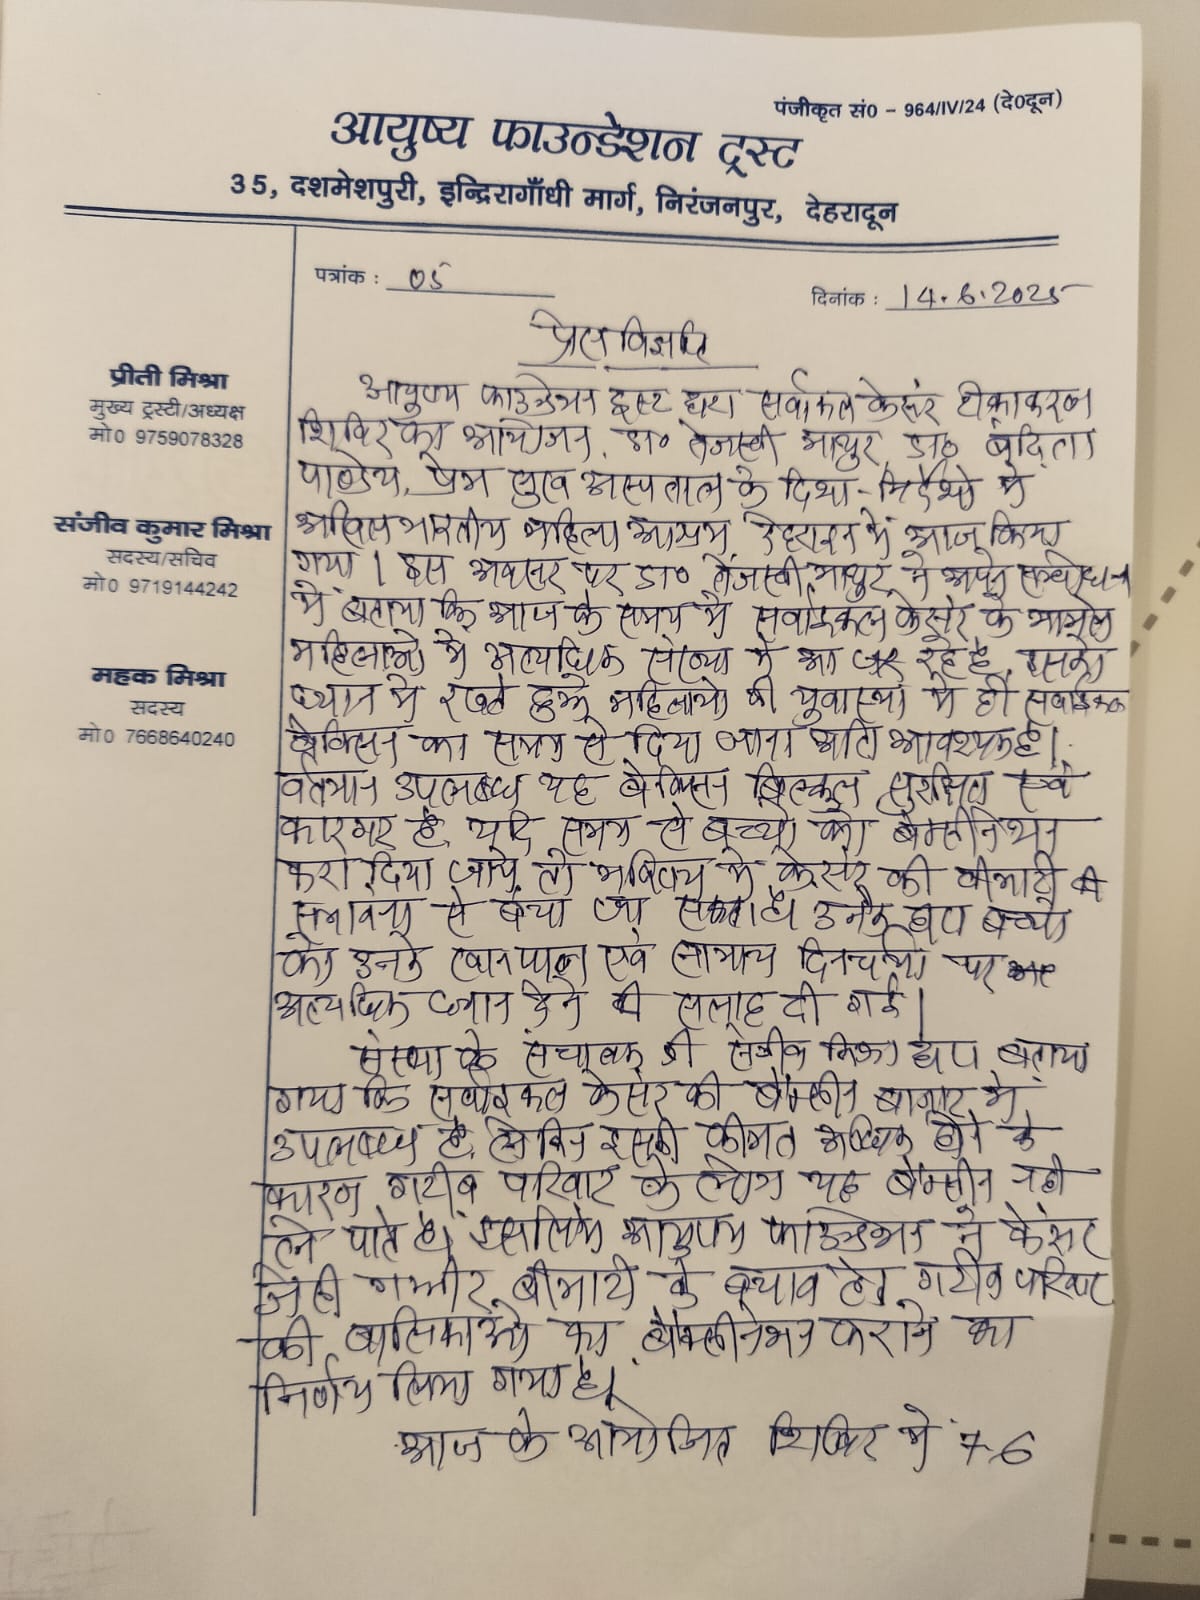 पंजीकृत सं0 - 964/IV/24 (दे0दून)
आयुष्य फाउन्डेशन ट्रस्ट
35, दशमेशपुरी, इन्दिरागाँधी मार्ग, निरंजनपुर, देहरादून
पत्रांक : 05
दिनांक : 14.6.2025
प्रेस विज्ञप्ति
प्रीती मिश्रा
मुख्य ट्रस्टी/अध्यक्ष
मो0 9759078328
संजीव कुमार मिश्रा
सदस्य/सचिव
मो0 9719144242
महक मिश्रा
सदस्य
मो0 7668640240
आयुष्य फाउन्डेशन ट्रस्ट द्वारा सर्वाकल केसंर टीकाकरण
शिविर का आयोजन, डा० तेजस्वी माथुर, डा० बंदिता
पाण्डेय, प्रेम सुख अस्पताल के दिशा-निर्देशो मे
अखिल भारतीय महिला आश्रम, देहरादून में आज किया
गया। इस अवसर पर डा० तेजस्वी माथुर ने अपने सम्बोधन
मे बताया कि आज के समय मे सर्वाइकल केसंर के मामले
महिलाओ मे अत्यधिक संख्या मे आ रहे है, इसको
ध्यान मे रखते हुये महिलाओ की युवास्था मे ही सर्वाइकल
वैक्सिन का समय से दिया जाना अति आवश्यक है।
वर्तमान उपलब्ध यह वेक्सिन बिल्कुल सुरक्षित एवं
कारगर है, यदि समय से बच्चो को वेक्सीनेशन
करा दिया जाये तो भविष्य मे केसंर की बीमारी की
संभावना से बचा जा सकता है। उनके द्वारा बच्चो
को उनके खानपान एवं सामान्य दिनचर्या पर
अत्यधिक ध्यान देने की सलाह दी गई।
संस्था के संचालक श्री संजीव मिश्रा द्वारा बताया
गया कि सर्वाइकल केसंर की वेक्सीन बाजार मे
उपलब्ध है, लेकिन इसकी कीमत अधिक होने के
कारण गरीब परिवार के लोग यह वेक्सीन नही
ले पाते है। इसलिये आयुष्य फाउन्डेशन ने केसंर
जैसी गम्भीर बीमारी के बचाव हेतु गरीब परिवार
की बालिकाओ का वेक्सीनेशन कराने का
निर्णय लिया गया है।
आज के आयोजित शिविर मे 76